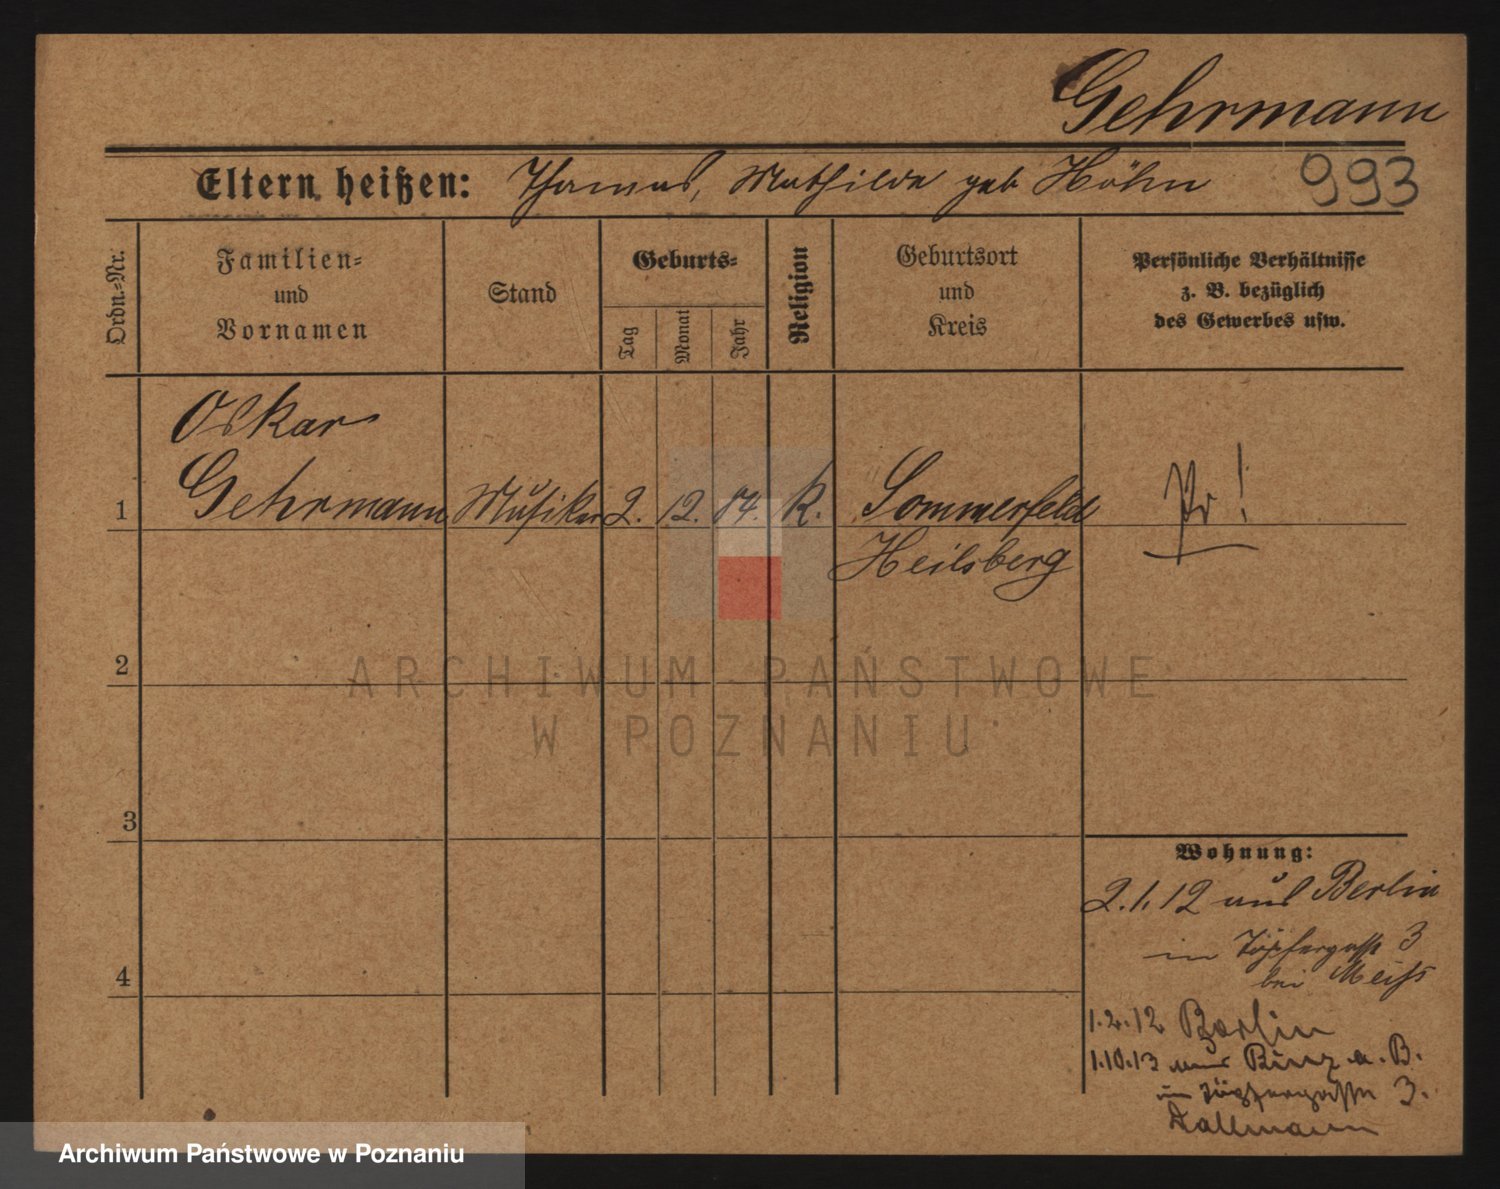 Gehrmann
Eltern heißen: Thomas, Mathilde geb Höhn 993
Ordn.-Nr.
Familien-
und
Vornamen
Stand
Geburts-
Tag
Monat
Jahr
Religion
Geburtsort
und
Kreis
Persönliche Verhältnisse
z. B. bezüglich
des Gewerbes usw.
Oskar
1 Gehrmann Musiker 2. 12. 84. K. Sommerfeld Pr!
Heilsberg
2
3
4
Wohnung:
2.1.12 aus Berlin
in Töpfergasse 3
bei Meiss
1.2.12 Berlin
1.10.13 aus Binz a. B.
in Töpfergasse 3.
Dallmann
ARCHIWUM PAŃSTWOWE
W POZNANIU
Archiwum Państwowe w Poznaniu